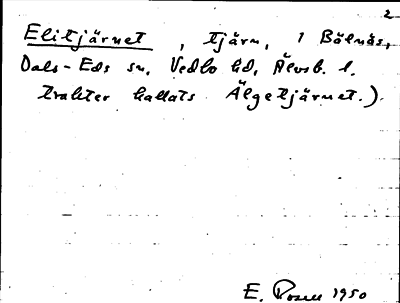 2
Elitjärnet, tjärn, i Bälnäs,
Dals-Eds sn. Vedbo hd, Älvsb. l.
trakter kallats Älgetjärnet.)
E. Rosell 1950